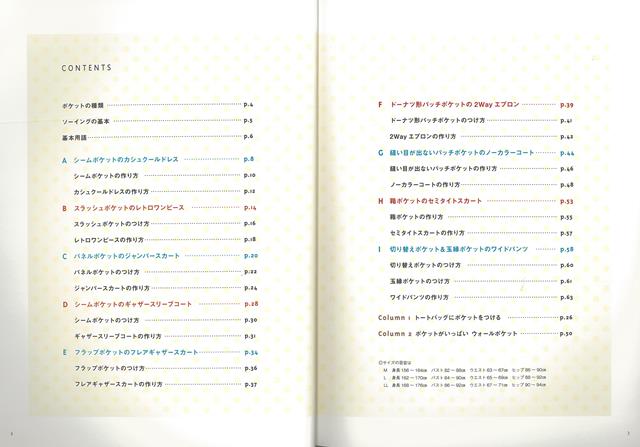 CONTENTS
ポケットの種類 p.4
ソーイングの基本 p.5
基本用語 p.6
A シームポケットのカシュクールドレス p.8
シームポケットの作り方 p.10
カシュクールドレスの作り方 p.12
B スラッシュポケットのレトロワンピース p.14
スラッシュポケットのつけ方 p.16
レトロワンピースの作り方 p.18
C パネルポケットのジャンパースカート p.20
パネルポケットのつけ方 p.22
ジャンパースカートの作り方 p.24
D シームポケットのギャザースリーブコート p.28
シームポケットのつけ方 p.30
ギャザースリーブコートの作り方 p.31
E フラップポケットのフレアギャザースカート p.34
フラップポケットのつけ方 p.36
フレアギャザースカートの作り方 p.37
F ドーナツ形パッチポケットの2Wayエプロン p.39
ドーナツ形パッチポケットのつけ方 p.41
2Wayエプロンの作り方 p.42
G 縫い目が出ないパッチポケットのノーカラーコート p.44
縫い目が出ないパッチポケットの作り方 p.46
ノーカラーコートの作り方 p.48
H 箱ポケットのセミタイトスカート p.53
箱ポケットの作り方 p.55
セミタイトスカートの作り方 p.57
I 切り替えポケット&玉縁ポケットのワイドパンツ p.58
切り替えポケットのつけ方 p.60
玉縁ポケットのつけ方 p.61
ワイドパンツの作り方 p.63
Column 1 トートバッグにポケットをつける p.26
Column 2 ポケットがいっぱい ウォールポケット p.50
◎サイズの目安は
M 身長156〜164cm バスト82〜88cm ウエスト63〜67cm ヒップ86〜90cm
L 身長162〜170cm バスト84〜90cm ウエスト65〜69cm ヒップ88〜92cm
LL 身長168〜176cm バスト86〜92cm ウエスト67〜71cm ヒップ90〜94cm